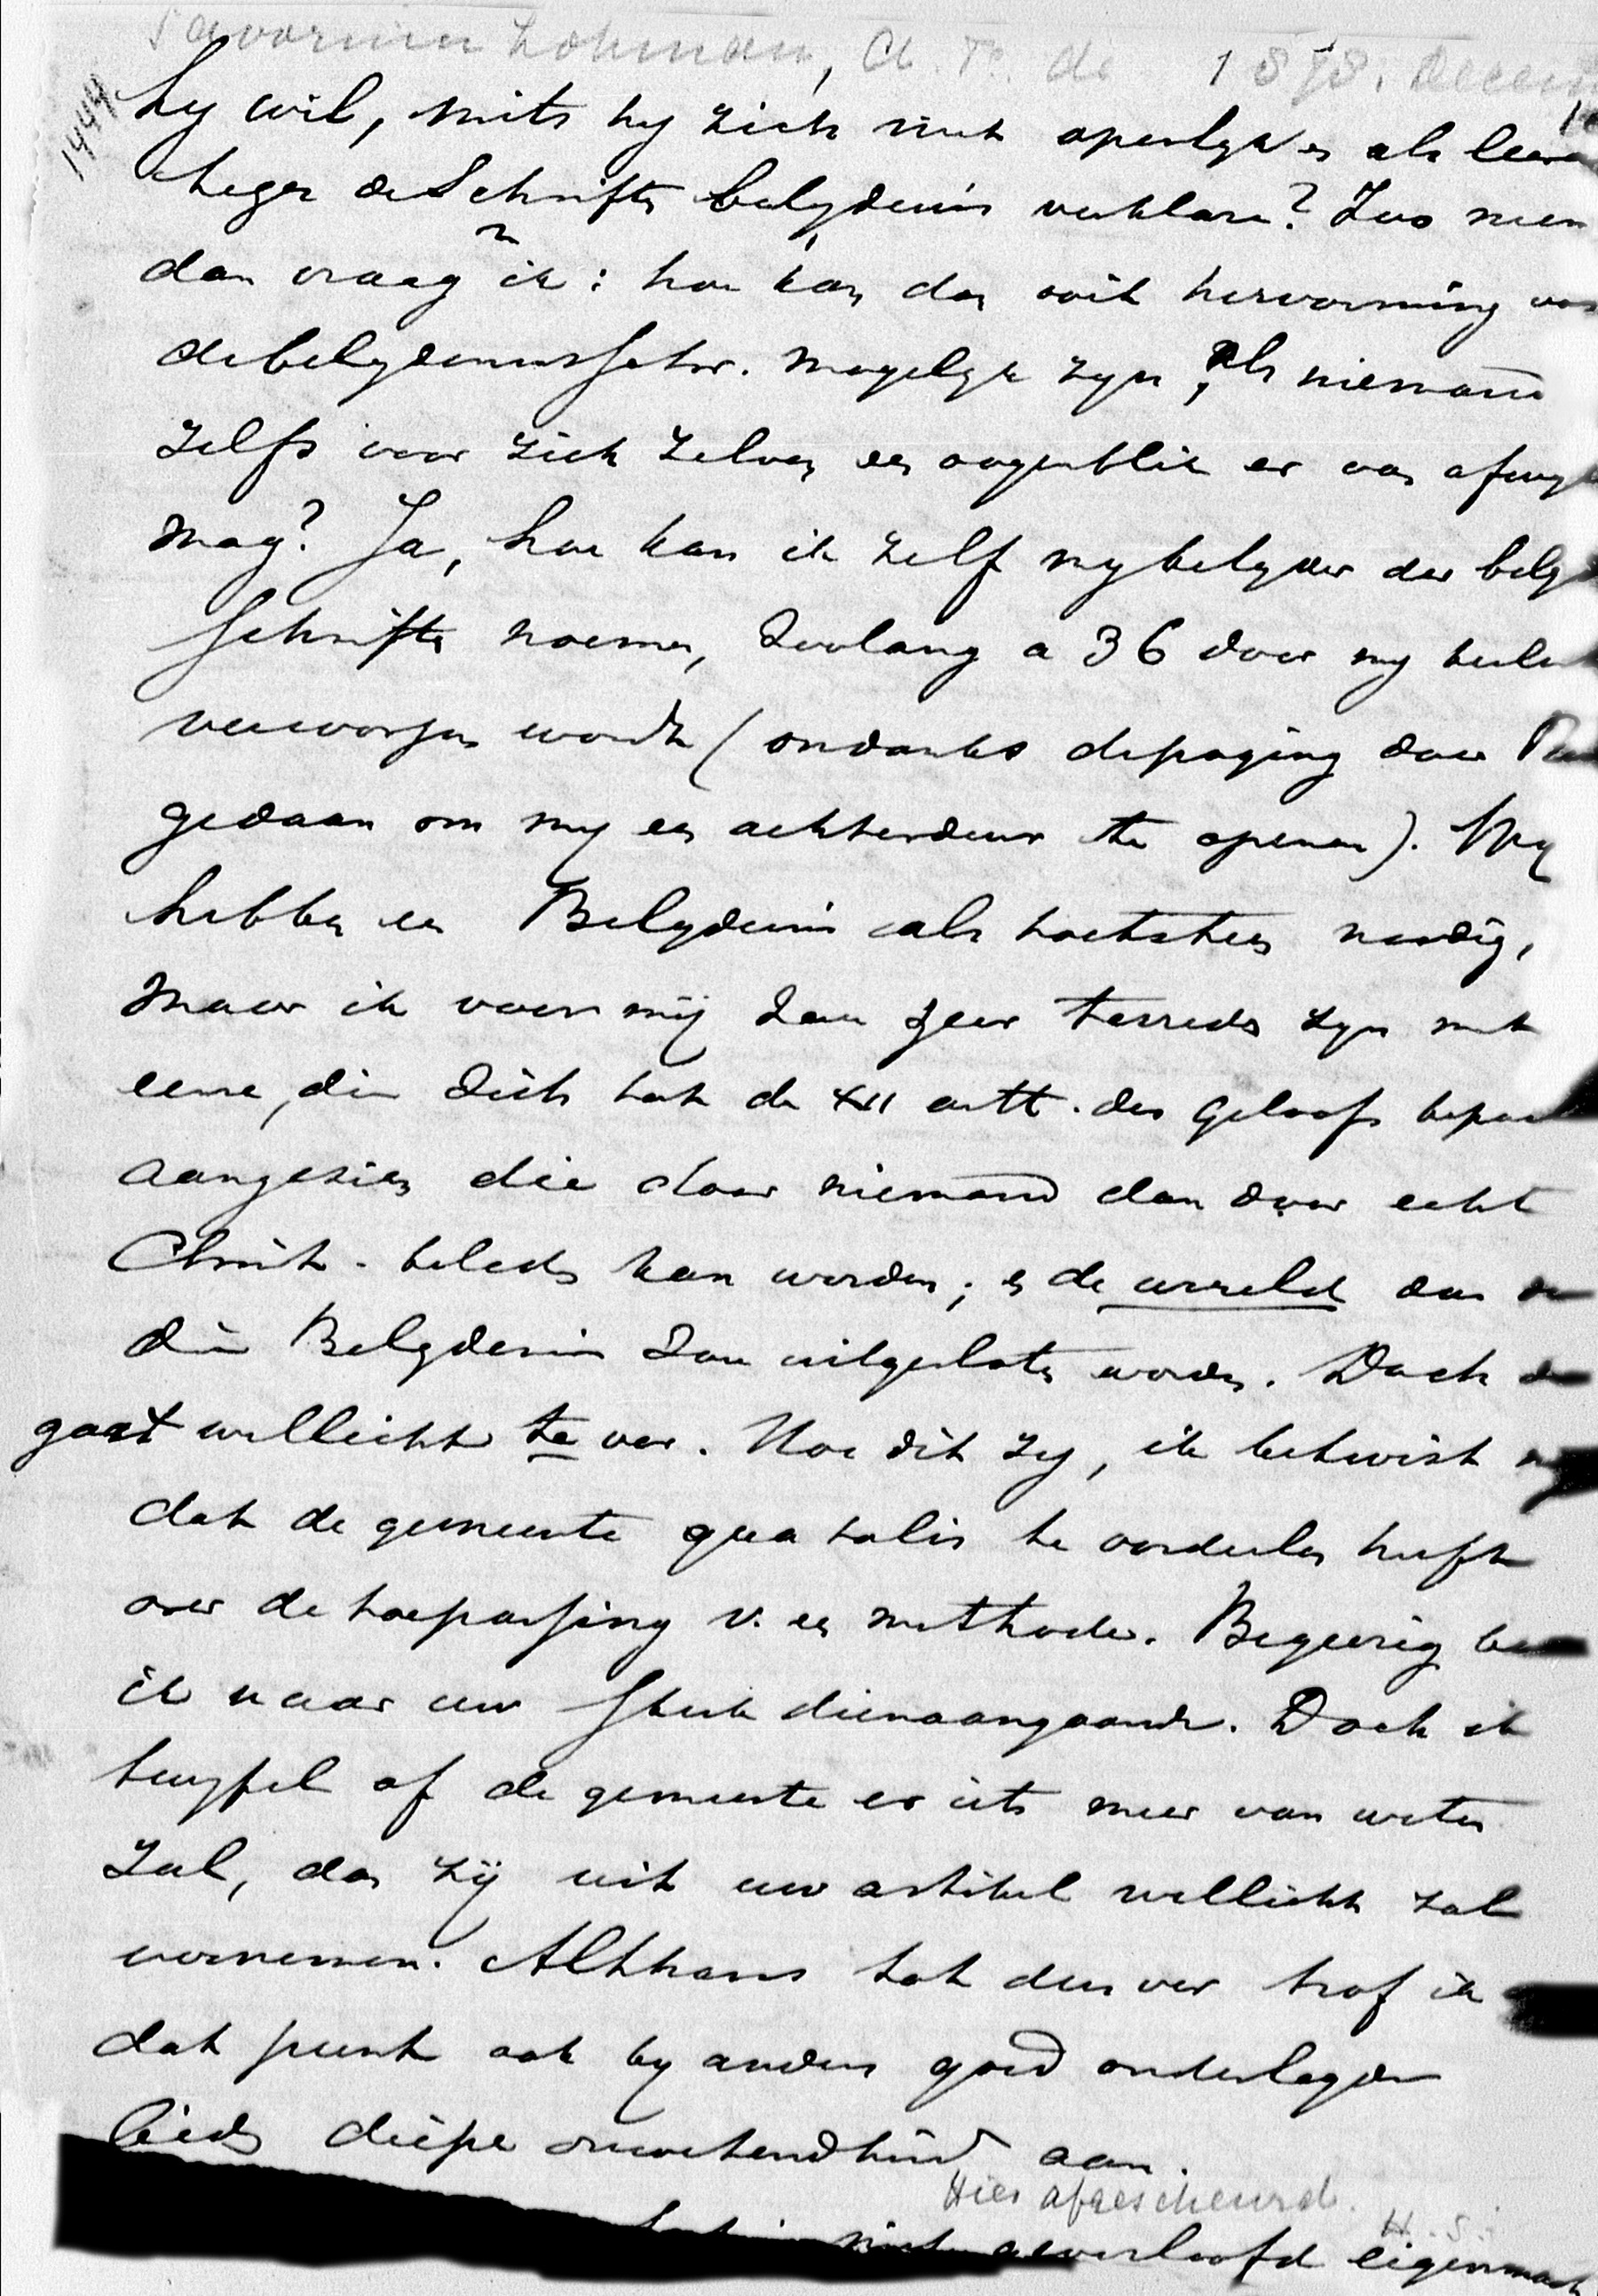 Savornin Lohman, A. F. de 1878. Decem
1444
hy wil, mits hy zich niet openlyk en als leera
tegen de Schriften belydenis verklare? Zoo neen
dan vraag ik: hoe kan dan ooit hervorming van
de belydenisschr. mogelyk zyn, als niemand
zelfs voor zich zelven een oogenblik er van afwyk
mag? Ja, hoe kan ik zelf my belyder der bely
schriften noemen, zoolang a 36 door my beslis
verworpen wordt (ondanks de poging door
gedaan om my een achterdeur te openen). Wy
hebben een Belydenis als toetssteen noodig,
maar ik voor mij zou zeer tevreden zyn met
eene, die zich tot de XII artt. des Geloofs bepaal
aangezien die door niemand dan door echt
Christ. beleden kan worden; en de wereld dan
die Belydenis zou uitgesloten worden. Doch
gaat wellicht te ver. Hoe dit zy, ik betwist
dat de gemeente qua talis te oordeelen heeft
over de toepassing v. een methode. Begeerig ben
ik naar uw stuk dienaangaande. Doch ik
twyfel of de gemeente er iets meer van weten
zal, dan zij uit uw artikel wellicht zal
vernemen. Althans tot dusver trof ik
dat punt ook by anders goed onderlegde
lieden diepe onwetendheid aan.
Hier afgescheurd. H.S.
niet geoorloofd eigenmach